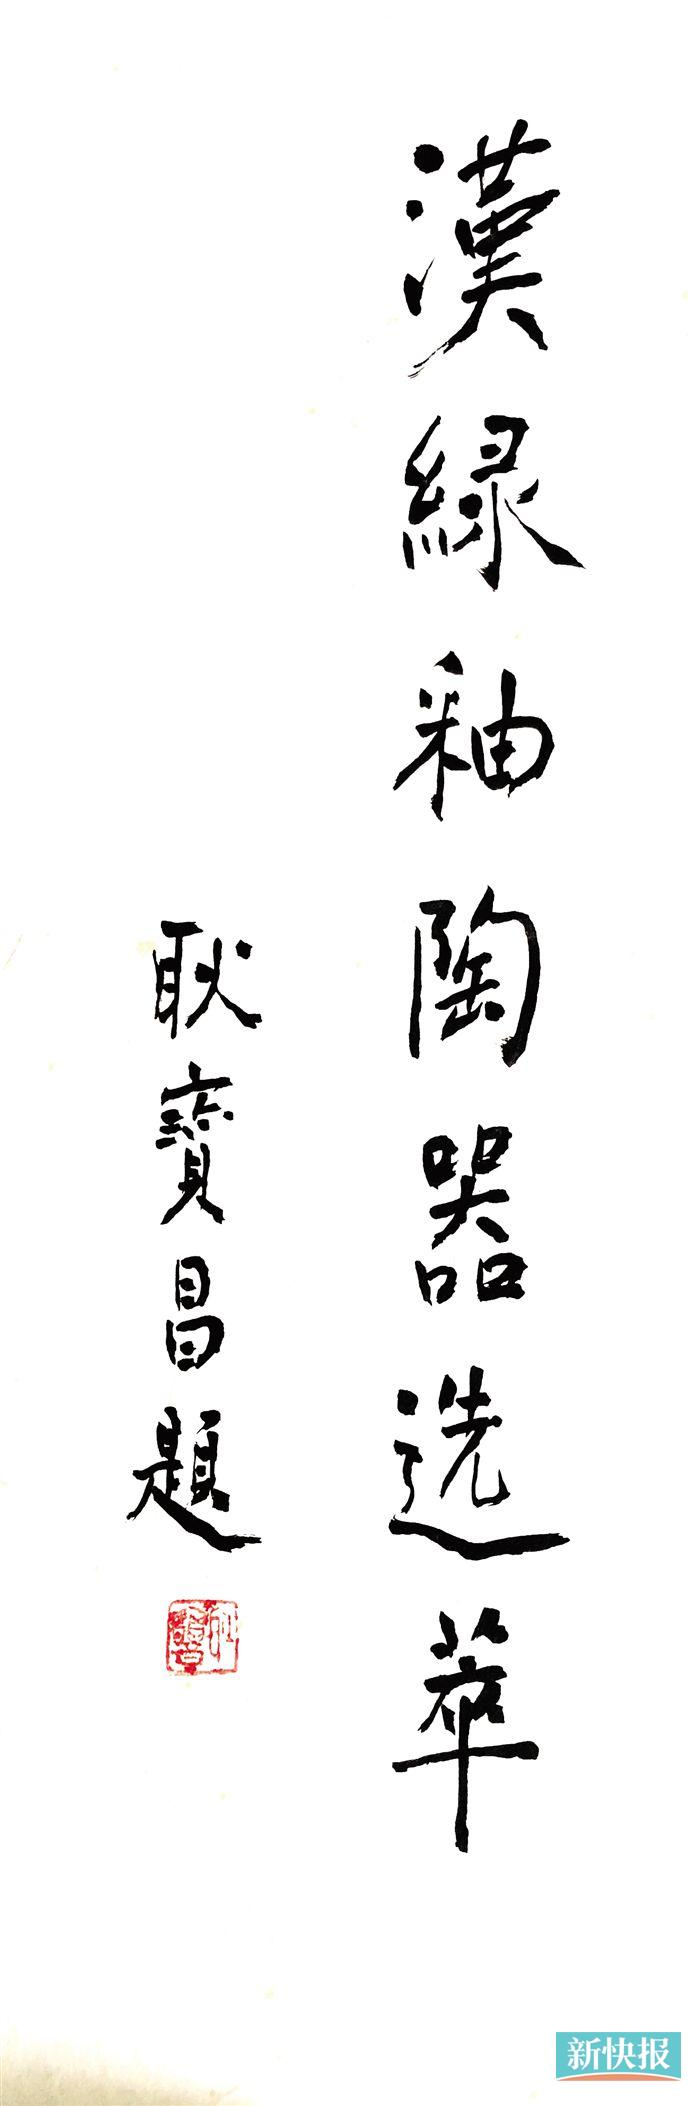 漢緑釉陶器选萃
耿寶昌題
新快报